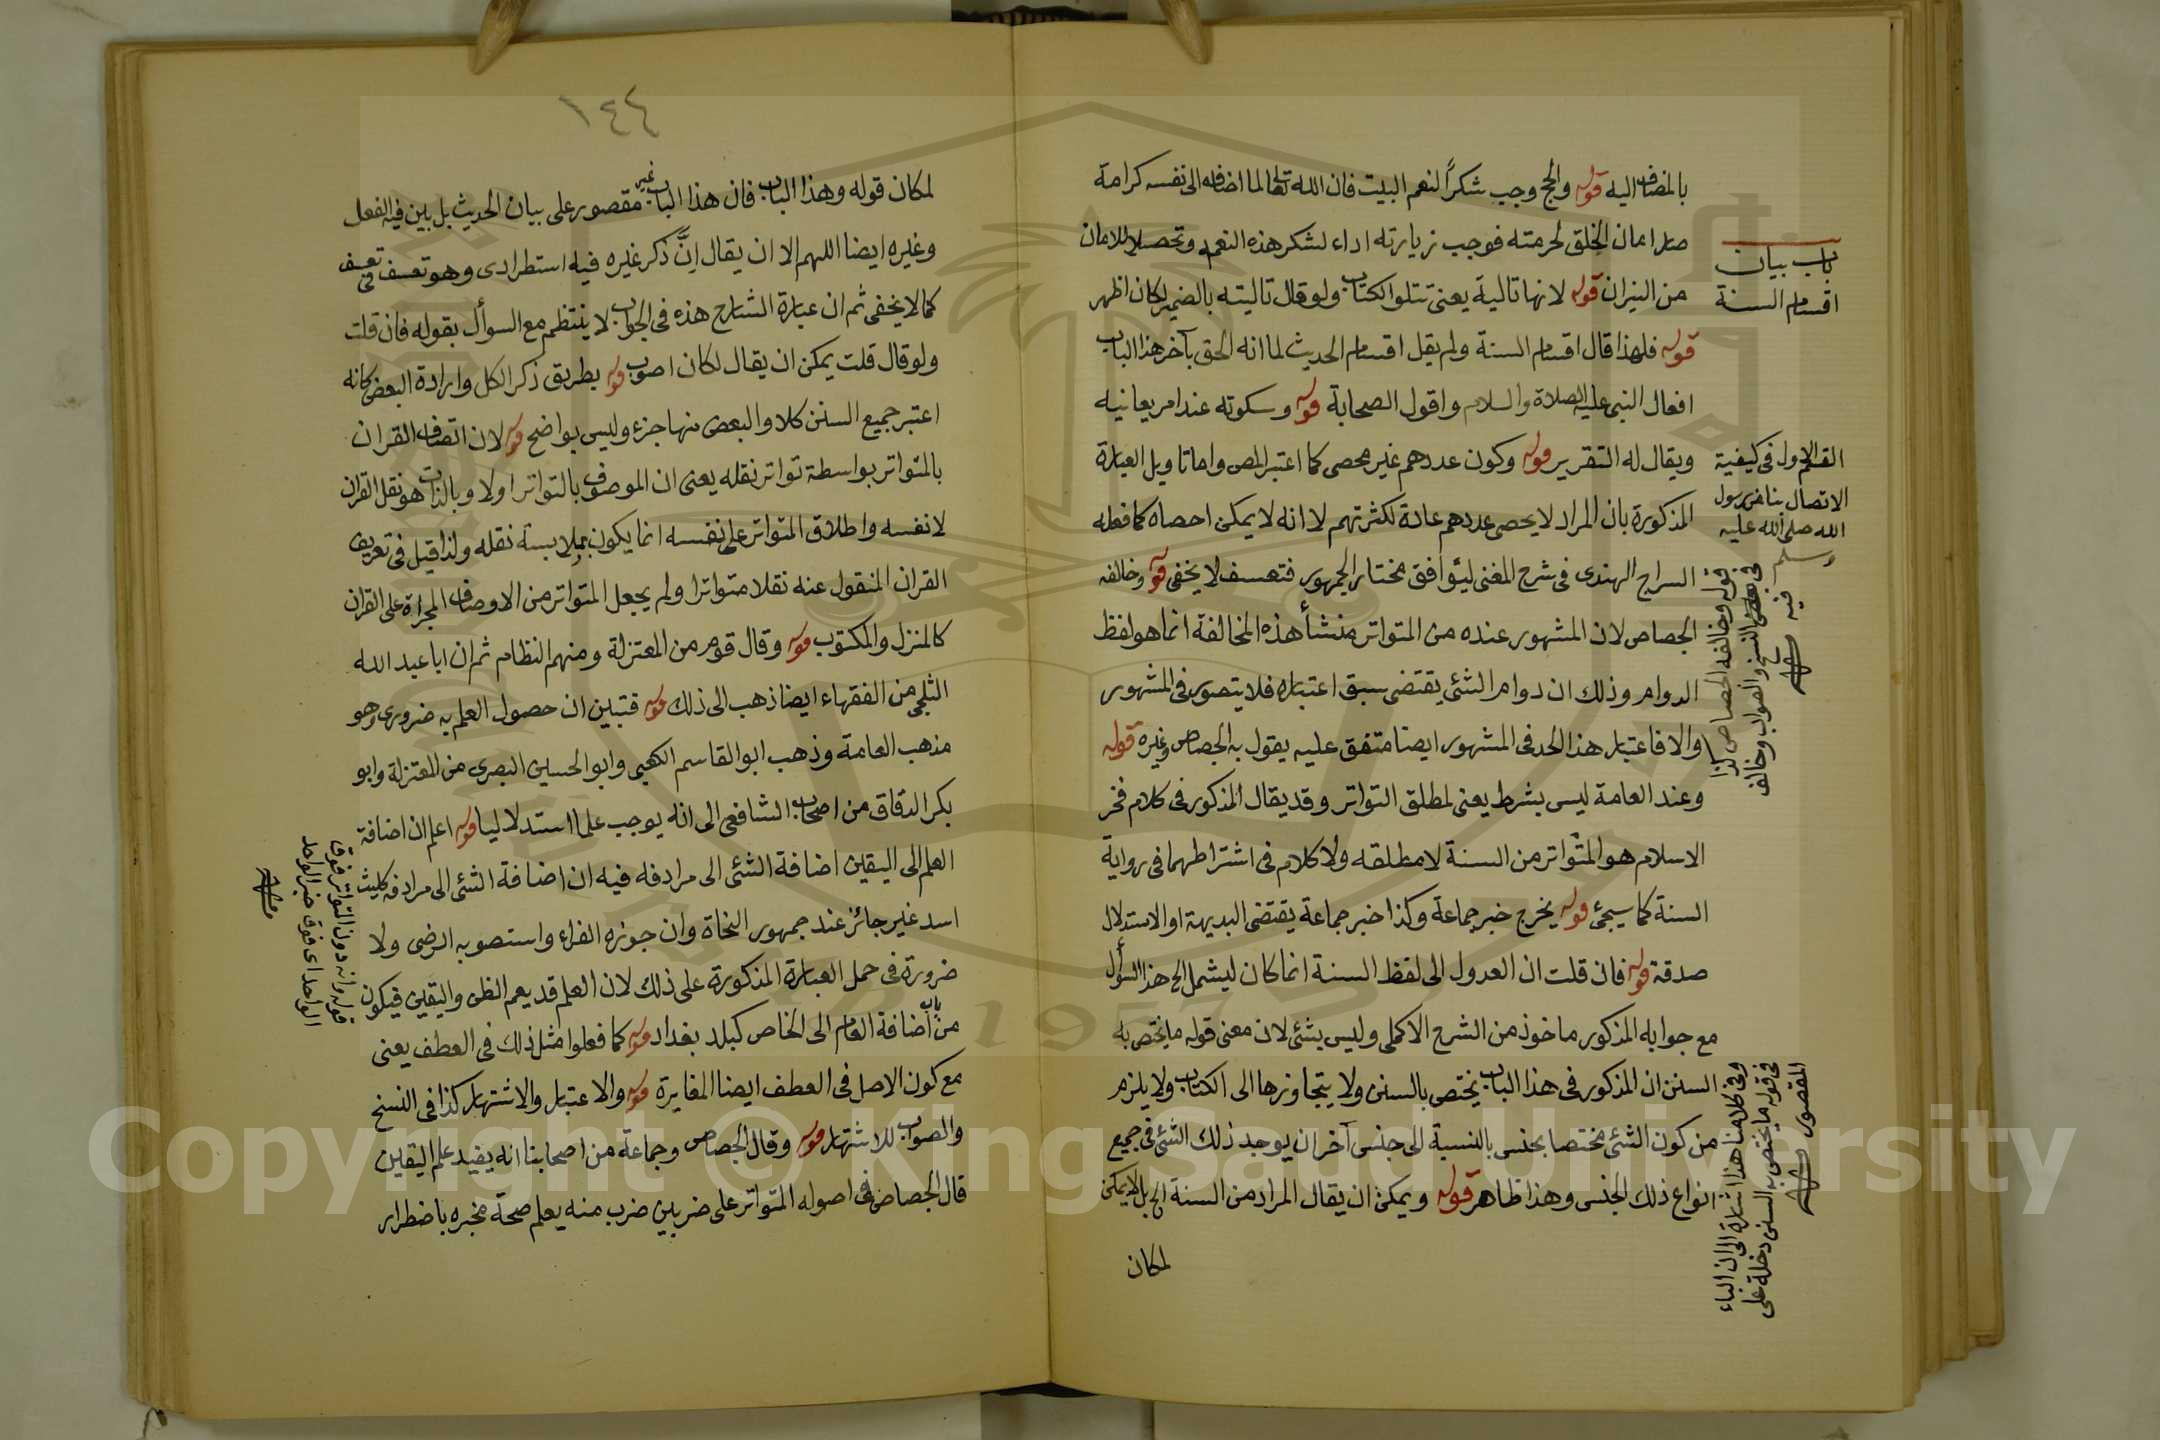 بالمضاف اليه قوله والحج وجب شكرًا لنعم البيت فان الله تعالى لما اضافه الى نفسه كرامة
صار امان الخلق لحرمته فوجب زيارته اداء لشكر هذه النعم وتحصيلا للامان
من النيران قوله لانها تالية يعني تتلو الكتاب ولو قال تاليته بالضمير لكان اظهر
قوله فلهذا قال اقسام السنة ولم يقل اقسام الحديث لما انه الحق بآخر هذا الباب
افعال النبي عليه الصلاة والسلام واقول الصحابة قوله وسكوته عند امر يعانيه
ويقال له التقرير قوله وكون عددهم غير محصى كما اعتبر المص واما تاويل العبارة
المذكورة بان المراد لا يحصى عددهم عادة لكثرتهم لا انه لا يمكن احصاه كما فعله
السراج الهندى فى شرح المغنى ليوافق مختار الجمهور فتعسف لا يخفى قوله وخالفه
الجصاص لان المشهور عنده من المتواتر منشأ هذه المخالفة انما هو لفظ
الدوام وذلك ان دوام الشئ يقتضى سبق اعتباره فلا يتصور فى المشهور
والا فاعتبار هذا الحد فى المشهور ايضا متفق عليه يقول به الجصاص وغيره قوله
وعند العامة ليس بشرط يعنى لمطلق التواتر وقد يقال المذكور فى كلام فخر
الاسلام هو المتواتر من السنة لا مطلقه ولا كلام فى اشتراطهما فى رواية
السنة كما سيجئ قوله يخرج خبر جماعة وكذا خبر جماعة يقتضى البديهة او الاستدلال
صدقة قوله فان قلت ان العدول الى لفظ السنة انما كان ليشمل الخ هذا السؤل
مع جوابه المذكور ماخوذ من الشرح الاكملى وليس بشئ لان معنى قوله ما يختص به
السنن ان المذكور فى هذا الباب يختص بالسنن ولا يتجاوزها الى الكتاب ولا يلزم
من كون الشئ مختصا بجنس بالنسبة الى جنس آخر ان يوجد ذلك الشئ فى جميع
انواع ذلك الجنس وهذا ظاهر قوله ويمكن ان يقال المراد من السنة الخ بل لا يمكن
لمكان
باب بيان
اقسام السنة
القسم الاول فى كيفية
الاتصال بنا من رسول
الله صلى الله عليه
وسلم
قوله وخالفه الجصاص كذا
فى بعض النسخ والصواب وخالف
فيه
وفى كلامنا هذا اشارة الى ان الباء
فى قوله ما يختص به السنن دخلة على
المقصور
١٤٤
لمكان قوله وهذا الباب فان هذا الباب غير مقصور على بيان الحديث بل بين فيه الفعل
وغيره ايضا اللهم الا ان يقال انّ ذكر غيره فيه استطرادى وهو تعسف فى تعسف
كما لا يخفى ثم ان عبارة الشارح هذه فى الجواب لا ينتظم مع السوأل بقوله فان قلت
ولو قال قلت يمكن ان يقال لكان اصوب قوله بطريق ذكر الكل وارادة البعض كانه
اعتبر جميع السنن كلا والبعض منها جزء وليس بواضح قوله لان اتصاف القران
بالمتواتر بواسطة تواتر نقله يعنى ان الموصوف بالتواتر اولا وبالذات هو نقل القران
لا نفسه واطلاق المتواتر على نفسه انما يكون بملابسة نقله ولذا قيل فى تعريف
القران المنقول عنه نقلا متواترا ولم يجعل المتواتر من الاوصاف المجراة على القران
كالمنزل والمكتوب قوله وقال قوم من المعتزلة ومنهم النظام ثم ان ابا عبد الله
الثلجى من الفقهاء ايضا ذهب الى ذلك قوله فتبين ان حصول العلم به ضرورى وهو
مذهب العامة وذهب ابو القاسم الكعبى وابو الحسين البصرى من المعتزلة وابو
بكر الدقاق من اصحاب الشافعى الى انه يوجب علما استدلاليا قوله اعلم ان اضافة
العلم الى اليقين اضافة الشئ الى مرادفه فيه ان اضافة الشئ الى مرادفه كليث
اسد غير جائز عند جمهور النحاة وان جوزه الفراء واستصوبه الرضى ولا
ضرورة فى حمل العبارة المذكورة على ذلك لان العلم قد يعم الظن واليقين فيكون
من باب اضافة العام الى الخاص كبلد بغداد قوله كما فعلوا مثل ذلك فى العطف يعنى
مع كون الاصل فى العطف ايضا المغايرة قوله والاعتبار والاشتهار كذا فى النسخ
والصواب للاشتهار قوله وقال الجصاص وجماعة من اصحابنا انه يفيد علم اليقين
قال الجصاص فى اصوله المتواتر على ضربين ضرب منه يعلم صحة مخبره باضطرار
قوله وانه دون التواتر فوق
الواحد اى فوق خبر الواحد
Copyright © King Saud University
1957